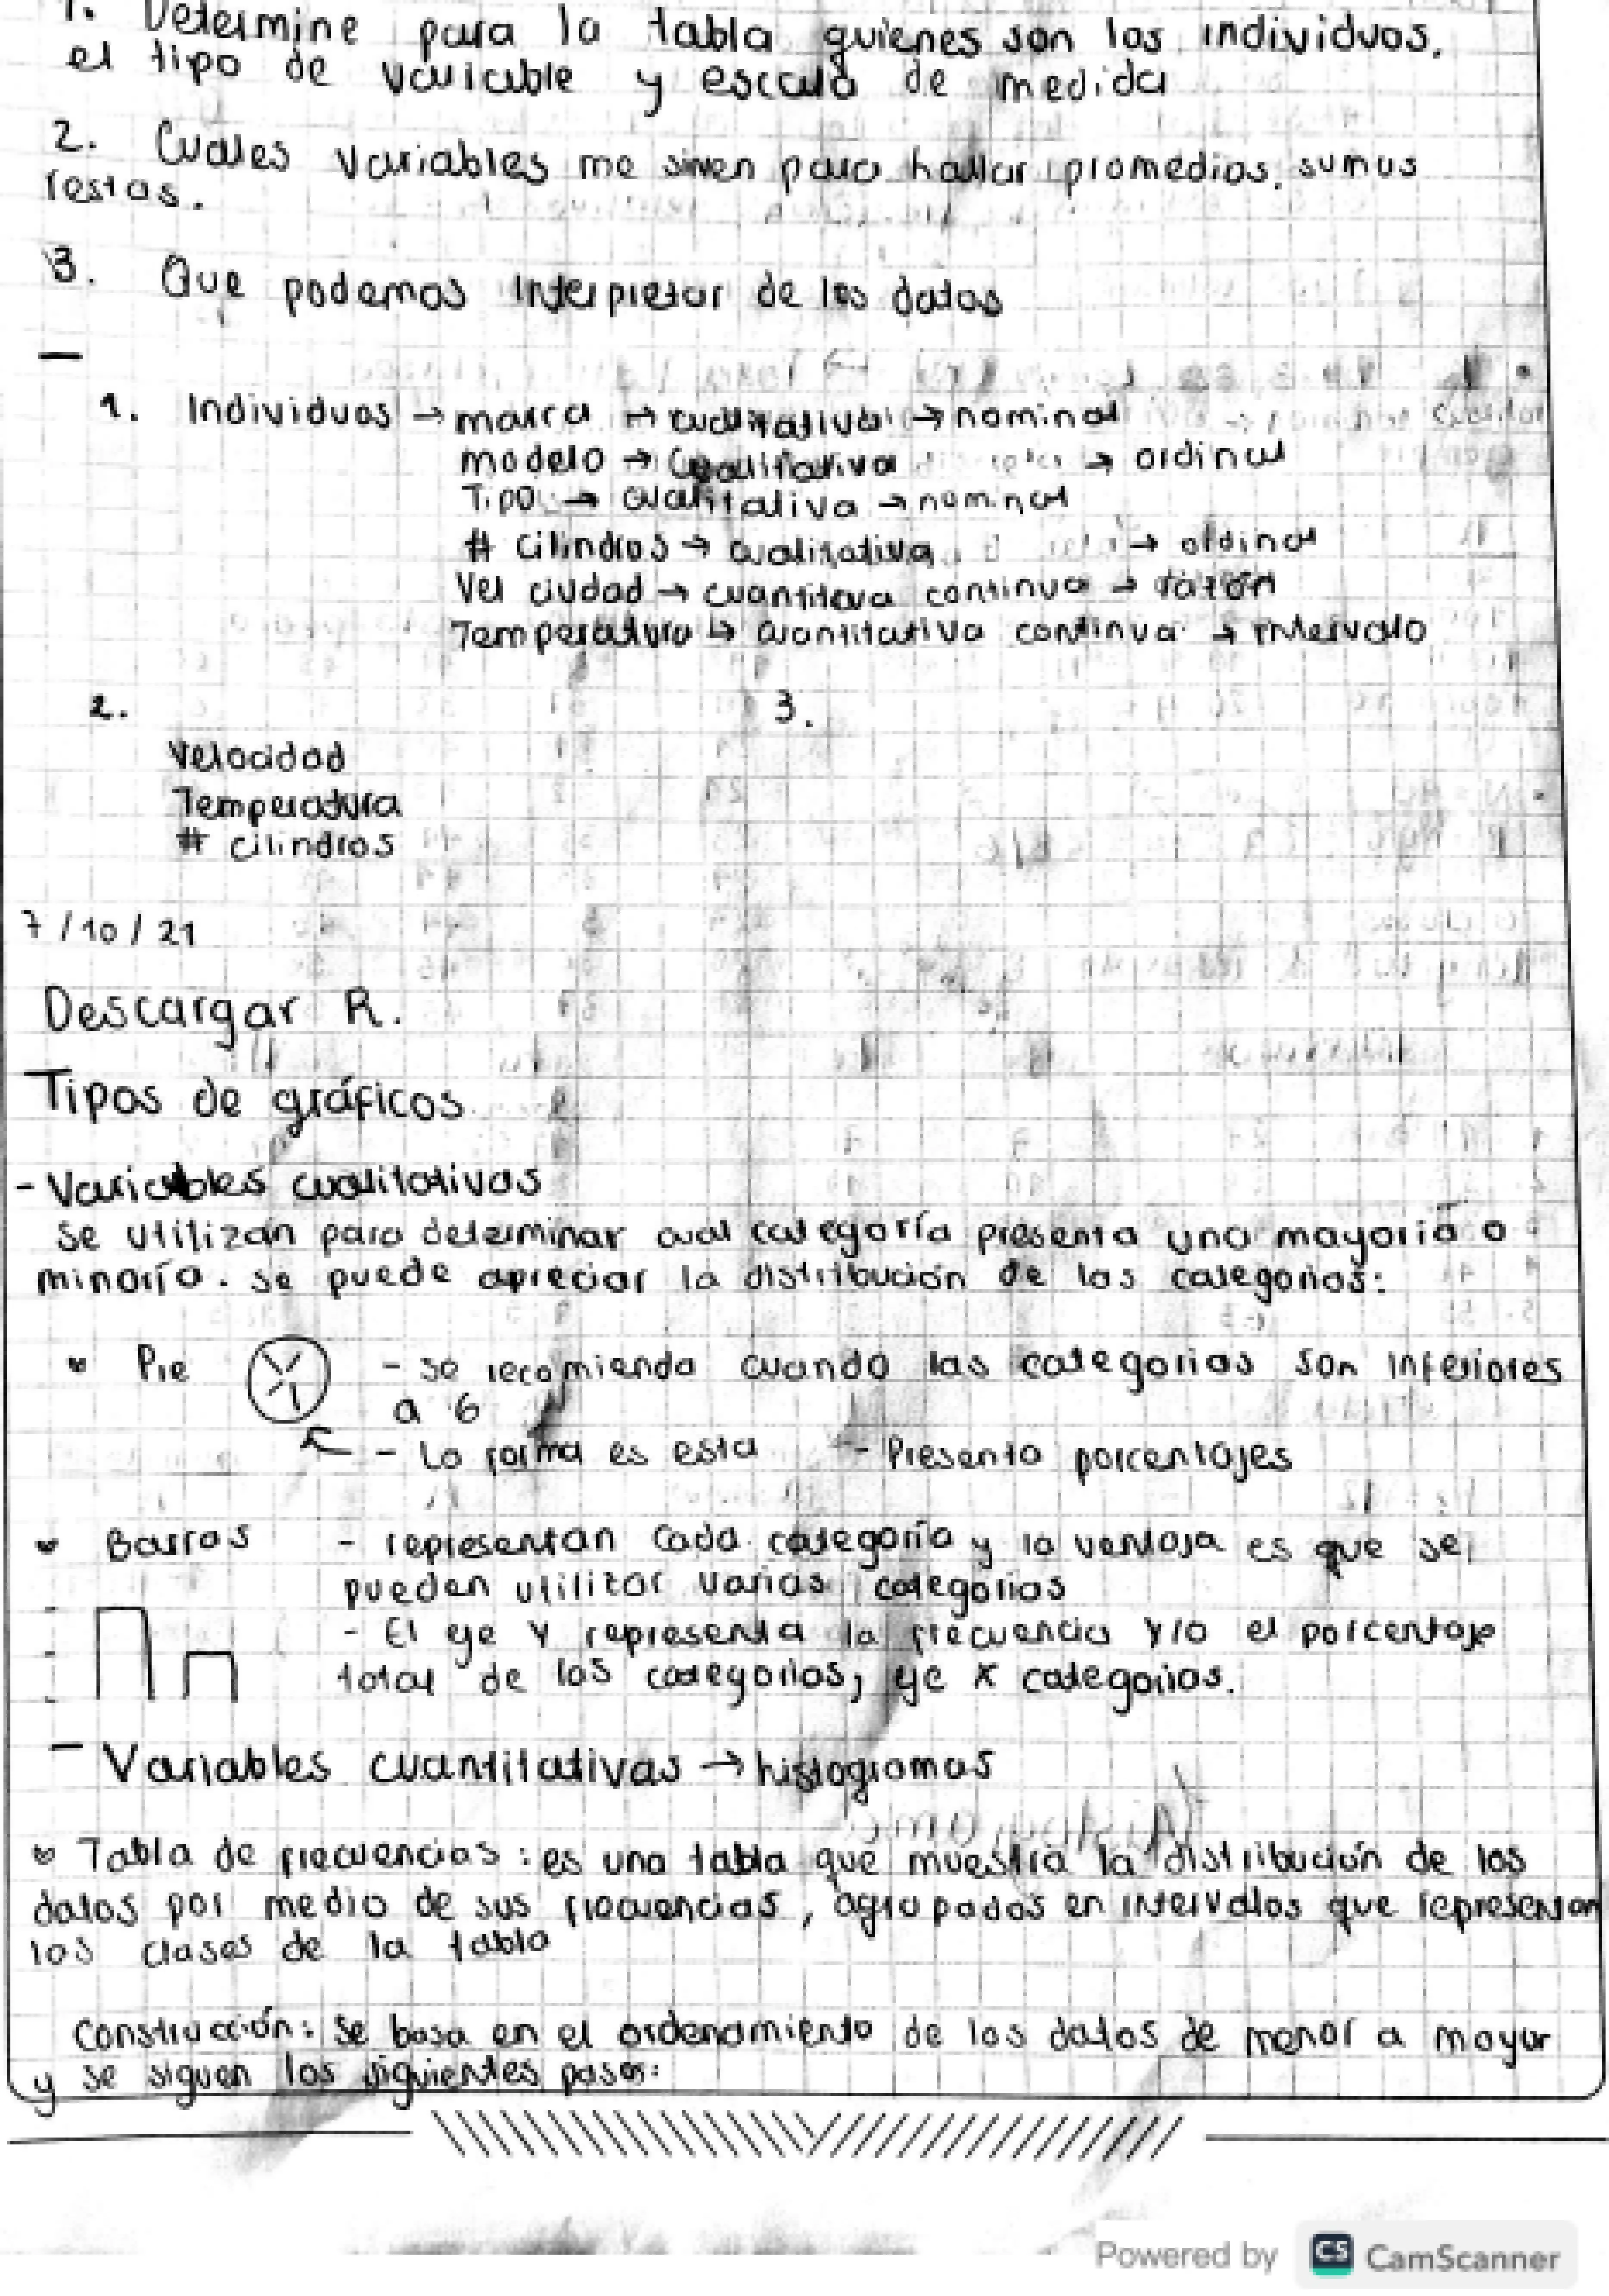 1. Determine para la tabla quienes son los individuos.
el tipo de variable y escala de medida
2. Cuales variables me sirven para hallar promedios, sumas
restas.
3. Que podemos interpretar de los datos
—
1. Individuos → marca → cualitativa → nominal
modelo → cualitativa → ordinal
Tipo → cualitativa → nominal
# cilindros → cualitativa → ordinal
Vel ciudad → cuantitava continua → razón
Temperatura → cuantitativa continua → intervalo
2. 3.
Velocidad
Temperatura
# cilindros
7/10/21
Descargar R.
Tipos de gráficos
- Variables cualitativas
se utilizan para determinar cual categoría presenta una mayoría o
minoría. se puede apreciar la distribución de las categorías:
Pie - se recomienda cuando las categorias son inferiores
a 6
- La forma es esta - Presenta porcentajes
Barras - representan cada categoría y la ventaja es que se
pueden utilizar varias categorias
- El eje Y representa la frecuencia y/o el porcentaje
total de las categorias, eje x categorias.
- Variables cuantitativas → histogramas
Tabla de frecuencias: es una tabla que muestra la distribución de los
datos por medio de sus frecuencias, agrupados en intervalos que representan
las clases de la tabla
Construcción: Se basa en el ordenamiento de los datos de menor a mayor
y se siguen los siguientes pasos:
Powered by CS CamScanner